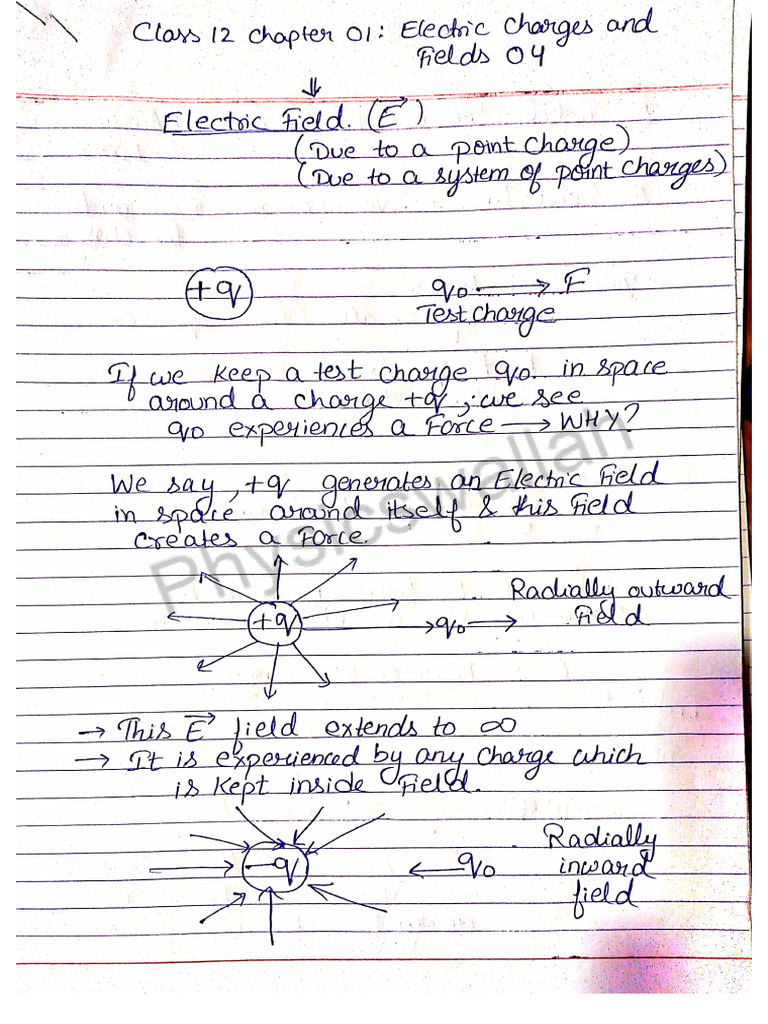 Class 12 chapter 01: Electric Charges and
Fields 04
⇓
Electric Field. (E⃗)
(Due to a point charge)
(Due to a system of point charges)
+q
q₀ → F
Test charge
If we keep a test charge q₀ in space
around a charge +q, we see
q₀ experiences a Force → WHY?
We say, +q generates an Electric Field
in space around itself & this Field
creates a Force.
Physicswallah
Radially outward
Field
+q
→ q₀ →
→ This E⃗ field extends to ∞
→ It is experienced by any charge which
is kept inside Field.
Radially
inward
field
-q
← q₀